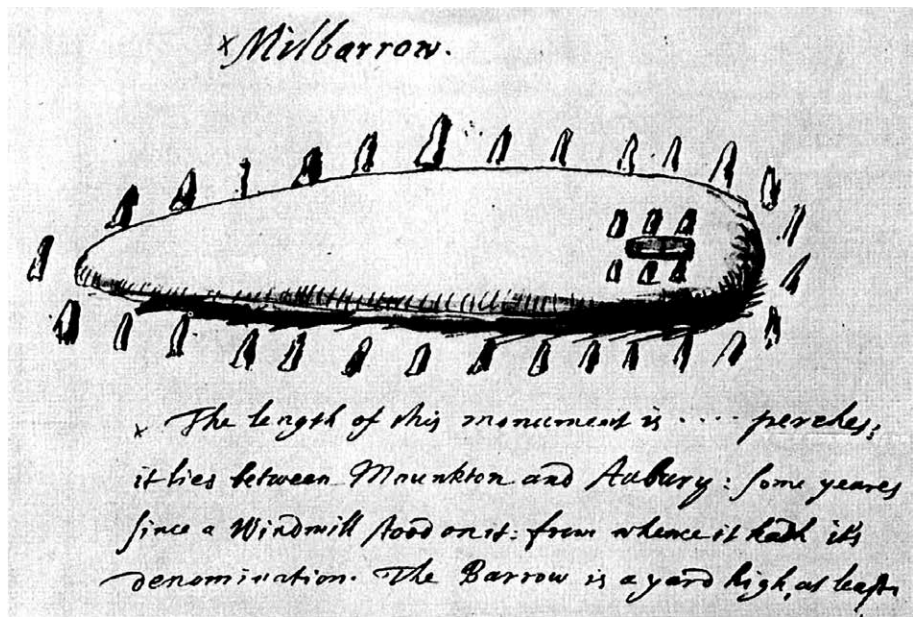 × Milbarrow.
× The length of this monument is .... perches;
it lies between Mounkton and Aubury: some yeares
since a Windmill stood on it: from whence it hath it's
denomination. The Barrow is a yard high, at least